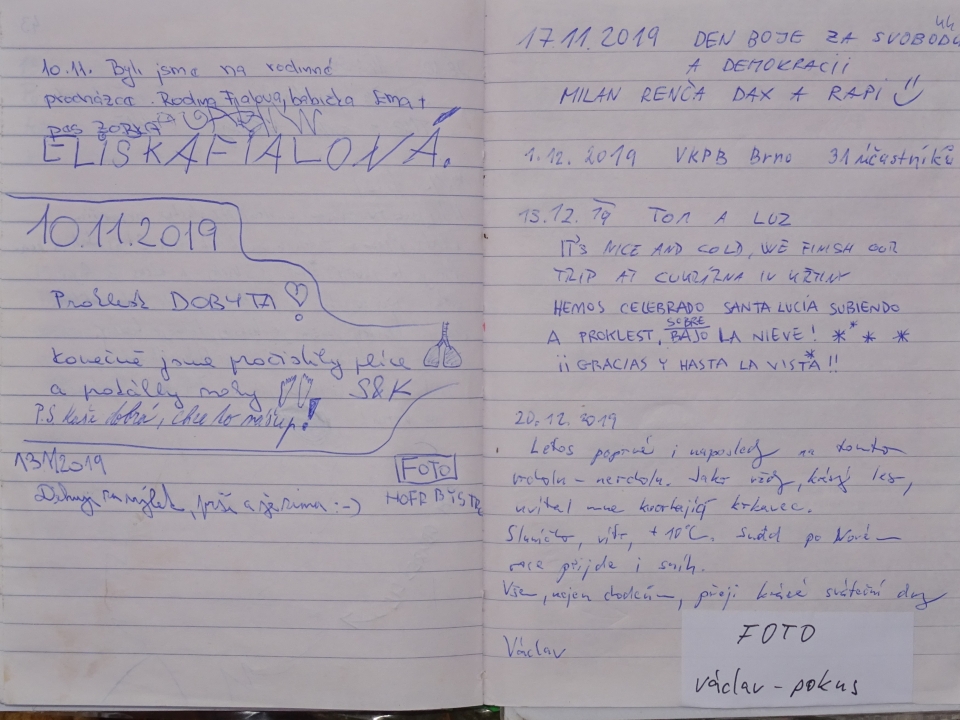 10.11. Byli jsme na rodinné
procházce. Rodina Fialova, babička Ema +
pes ZORKA
ELIŠKA FIALOVÁ.
10.11.2019
Proklest DOBYTA
Konečně jsme pročistily plíce
a potáhly nohy S&K
P.S. Kaše dobrá, chce to nášup!
13 11 2019
FOTO
Děkuji za výlet, prší a je zima :-)
HOFF BYSTRC
44
17.11.2019 DEN BOJE ZA SVOBODU
A DEMOKRACII
MILAN RENČA DAX A RAPI
1.12. 2019 VKPB Brno 31 účastníků
13.12. 19 TOM A LUZ
IT'S NICE AND COLD, WE FINISH OUR
TRIP AT CUKRÁRNA IN
HEMOS CELEBRADO SANTA LUCÍA SUBIENDO
A PROKLEST, BAJO SOBRE LA NIEVE! * * * *
¡¡ GRACIAS Y HASTA LA VISTA !!
20.12.2019
Letos poprvé i naposledy na tomto
vrcholu - nevrcholu. Jako vždy, krásný les,
uvítal mne krkavec.
Sluníčko, vítr, +10°C. Snad po Novém
roce přijde i sníh.
Všem, nejen chodcům, přeji krásné sváteční dny
Václav
FOTO
václav - pokus